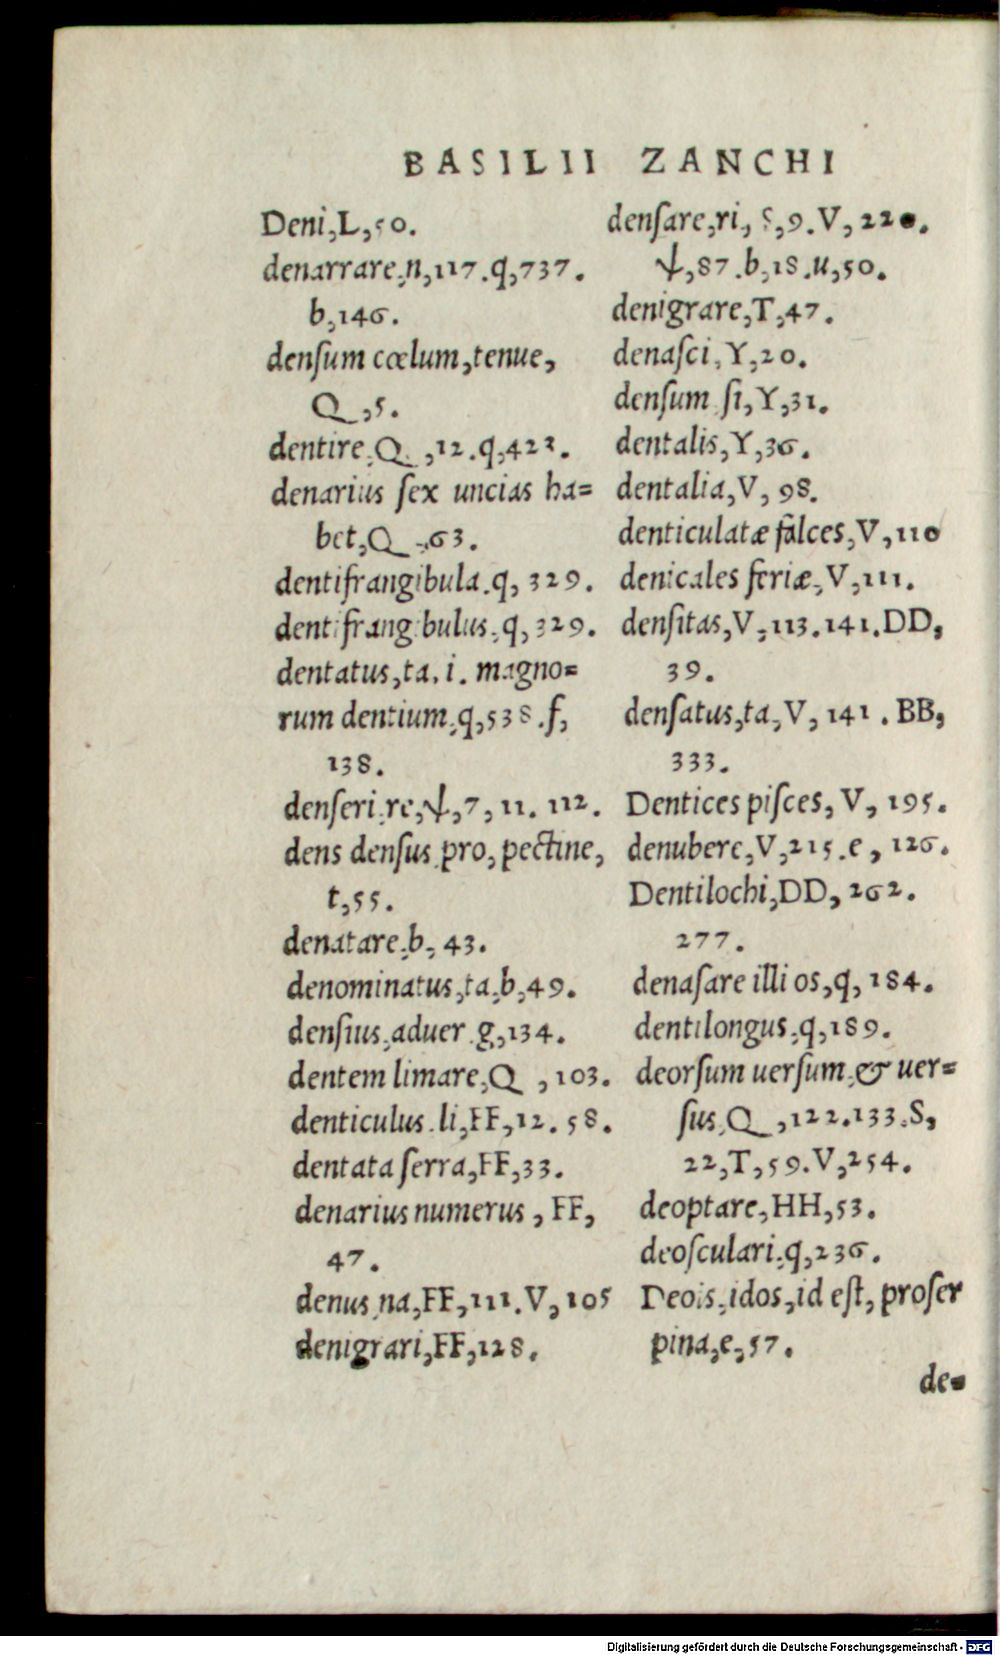 BASILII ZANCHI
Deni,L,50.
denarrare,n,117.q,737.
b,146.
denſum cœlum,tenue,
Q,5.
dentire,Q,12.q,422.
denarius ſex uncias ha=
bet,Q,63.
dentifrangibula.q,329.
dentifrangibulus,q,329.
dentatus,ta.i. magno=
rum dentium,q,538.f,
138.
denſeri,re,ѱ,7,11.112.
dens denſus pro,pectine,
t,55.
denatare,b,43.
denominatus,ta,b,49.
denſius,aduer.g,134.
dentem limare,Q,103.
denticulus.li,FF,12.58.
dentata ſerra,FF,33.
denarius numerus,FF,
47.
denus,na,FF,111.V,105
denigrari,FF,128.
denſare,ri, S,9.V,220.
ѱ,87.b,18.u,50.
denigrare,T,47.
denaſci,Y,20.
denſum ſi,Y,31.
dentalis,Y,36.
dentalia,V,98.
denticulatæ falces,V,110
denicales feriæ,V,111.
denſitas,V,113.141.DD,
39.
denſatus,ta,V,141.BB,
333.
Dentices piſces,V,195.
denubere,V,215.e,126.
Dentilochi,DD,262.
277.
denaſare illi os,q,184.
dentilongus,q,189.
deorſum uerſum,& uer=
ſus,Q,122.133.S,
22,T,59.V,254.
deoptare,HH,53.
deoſculari,q,236.
Deois,idos,id eſt,proſer
pina,e,57.
de=
Digitalisierung gefördert durch die Deutsche Forschungsgemeinschaft - DFG